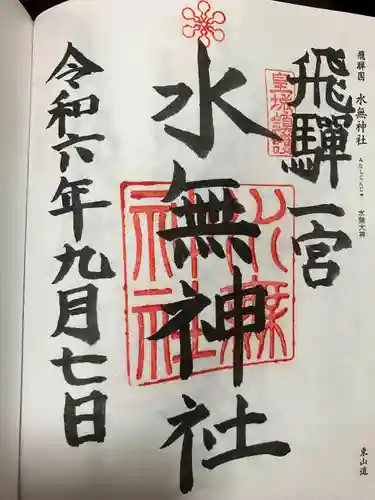 飛騨国 水無神社
みなしじんじゃ
水無大神
東山道
飛騨一宮
水無神社
令和六年九月七日
水無神社